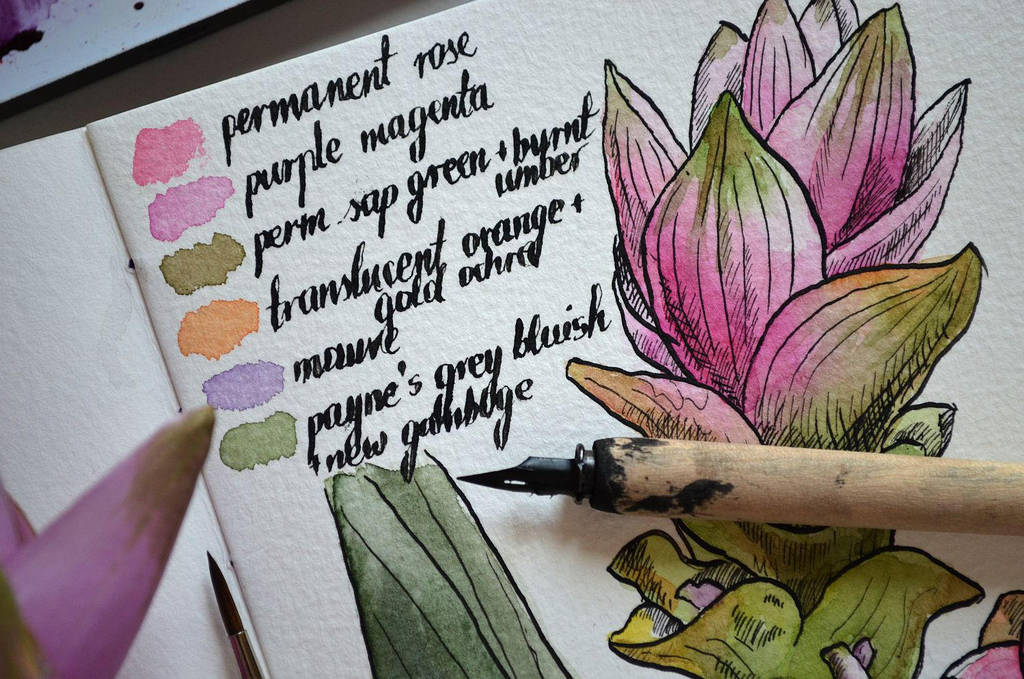 permanent rose
purple magenta
perm. sap green + burnt
umber
translucent orange +
gold ochre
mauve
payne's grey bluish
+ new gamboge